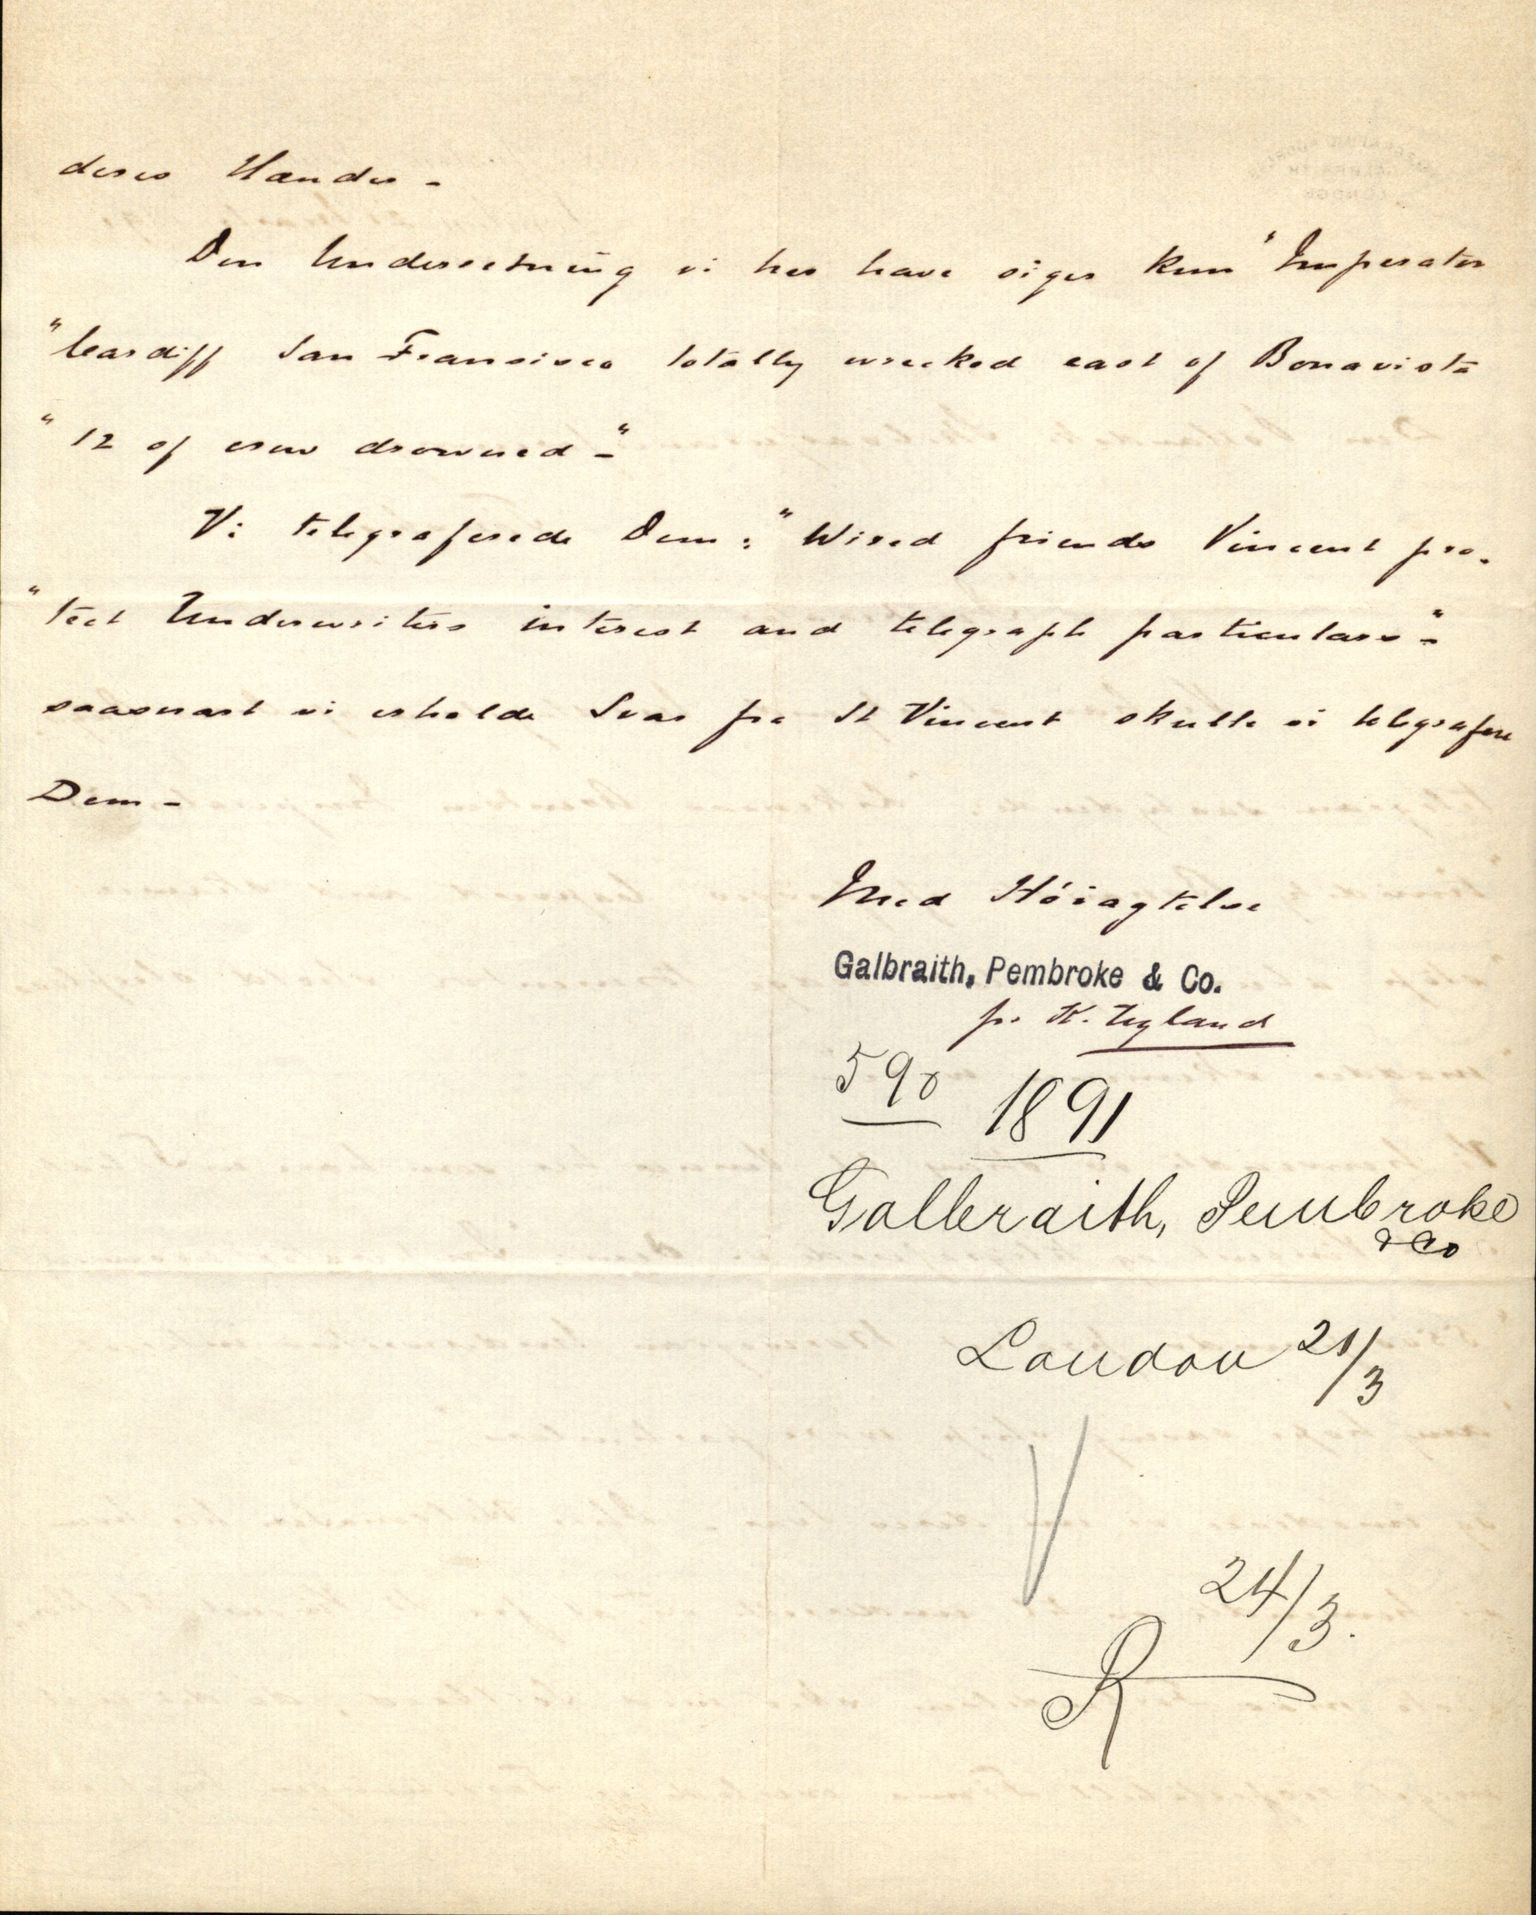 deres Hænder -
Den Underretning vi her have siger kun "Imperator
"Cardiff San Fransisco totally wrecked east of Bonavista
"12 of crew drowned -"
Vi telegraferede Dem: "Wired friends Vincent pro-
"tect Underwriters interest and telegraph particulars" -
saasnart vi erholde Svar fra St Vincent skulle vi telegrafere
Dem -
Med Høiagtelse
Galbraith, Pembroke & Co.
pr K. Ugland
590
1891
Galbraith, Pembroke
& Co
London 21/3
24/3.
R